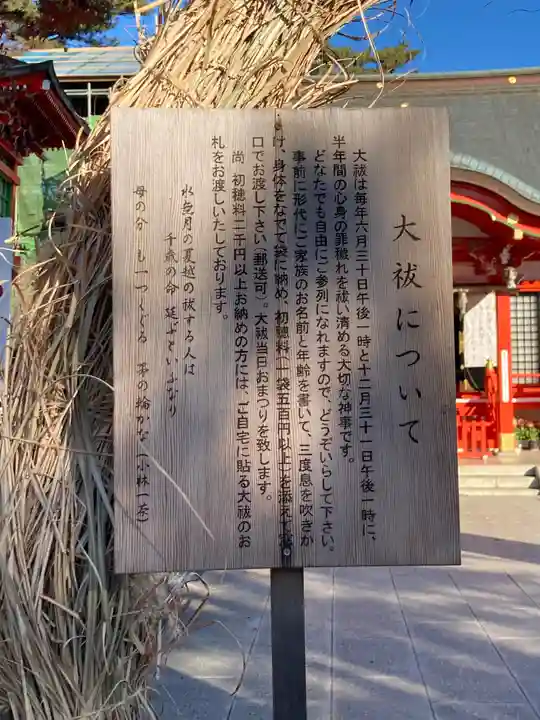 大祓について
大祓は毎年六月三十日午後一時と十二月三十一日午後一時に、
半年間の心身の罪穢れを祓い清める大切な神事です。
どなたでも自由にご参列になれますので、どうぞいらして下さい。
事前に形代にご家族のお名前と年齢を書いて、三度息を吹きか
け、身体をなでて袋に納め、初穂料(一袋五百円以上)を添えて窓
口でお渡し下さい(郵送可)。大祓当日おまつりを致します。
尚、初穂料二千円以上お納めの方には、ご自宅に貼る大祓のお
札をお渡しいたしております。
水無月の夏越の祓する人は
千歳の命 延ぶといふなり
母の分 も一つくぐる 茅の輪かな(小林一茶)